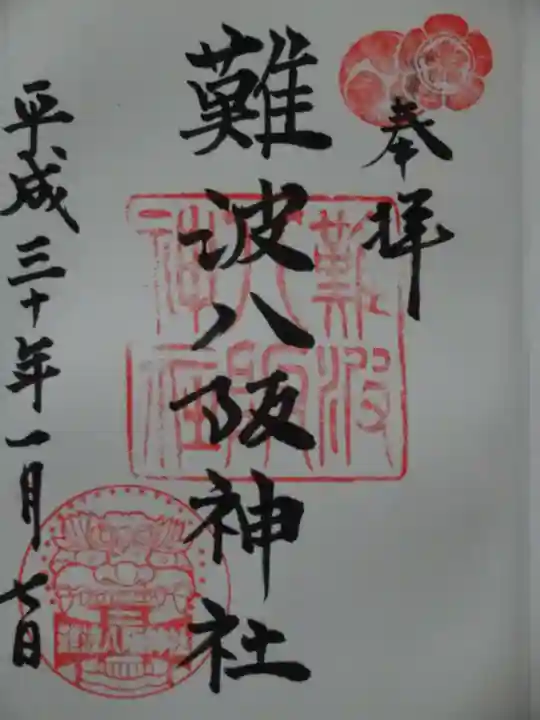 奉拝
難波八阪神社
平成三十年一月七日
難波八阪神社